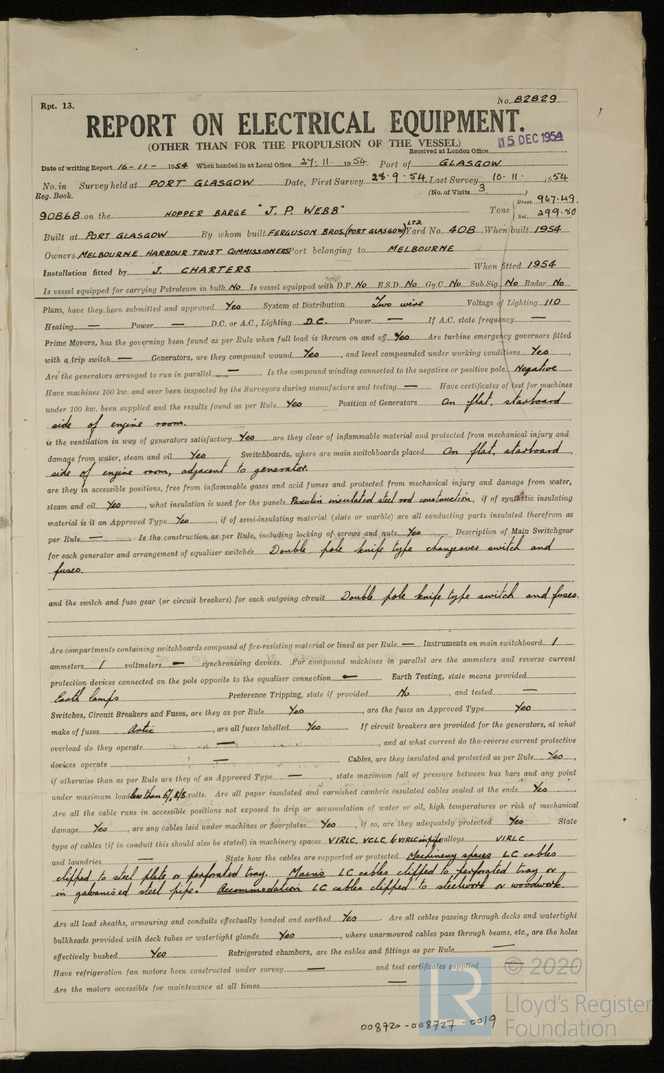 Rpt. 13.
No. 82829
REPORT ON ELECTRICAL EQUIPMENT.
(OTHER THAN FOR THE PROPULSION OF THE VESSEL)
Received at London Office 15 DEC 1954
Date of writing Report 16-11- 1954 When handed in at Local Office 27.11. 1954. Port of GLASGOW
No. in Survey held at PORT GLASGOW Date, First Survey 28.9.54. Last Survey 10.11. 1954
Reg. Book. (No. of Visits 3 )
90868 on the HOPPER BARGE "J. P. WEBB" Tons Gross 967.49. Net 299.80
Built at PORT GLASGOW By whom built FERGUSON BROS. (PORT GLASGOW) LTD Yard No. 408 When built 1954
Owners MELBOURNE HARBOUR TRUST COMMISSIONERS Port belonging to MELBOURNE
Installation fitted by J. CHARTERS When fitted 1954
Is vessel equipped for carrying Petroleum in bulk No Is vessel equipped with D.F. No E.S.D. No Gy.C. No Sub.Sig. No Radar No
Plans, have they been submitted and approved Yes System of Distribution Two wire Voltage of Lighting 110
Heating — Power — D.C. or A.C., Lighting D.C. Power — If A.C. state frequency —
Prime Movers, has the governing been found as per Rule when full load is thrown on and off Yes Are turbine emergency governors fitted
with a trip switch — Generators, are they compound wound Yes, and level compounded under working conditions Yes,
Are the generators arranged to run in parallel — Is the compound winding connected to the negative or positive pole Negative
Have machines 100 kw. and over been inspected by the Surveyors during manufacture and testing — Have certificates of test for machines
under 100 kw. been supplied and the results found as per Rule Yes Position of Generators On flat, starboard
side of engine room.
is the ventilation in way of generators satisfactory Yes are they clear of inflammable material and protected from mechanical injury and
damage from water, steam and oil Yes Switchboards, where are main switchboards placed On flat, starboard,
side of engine room, adjacent to generator.
are they in accessible positions, free from inflammable gases and acid fumes and protected from mechanical injury and damage from water,
steam and oil Yes, what insulation is used for the panels Paxolin insulated steel rod construction, if of synthetic insulating
material is it an Approved Type Yes, if of semi-insulating material (slate or marble) are all conducting parts insulated therefrom as
per Rule — Is the construction as per Rule, including locking of screws and nuts Yes Description of Main Switchgear
for each generator and arrangement of equaliser switches Double pole knife type changeover switch and
fuses.
and the switch and fuse gear (or circuit breakers) for each outgoing circuit Double pole knife type switch and fuses.
Are compartments containing switchboards composed of fire-resisting material or lined as per Rule — Instruments on main switchboard 1
ammeters 1 voltmeters — synchronising devices. For compound machines in parallel are the ammeters and reverse current
protection devices connected on the pole opposite to the equaliser connection — Earth Testing, state means provided
Earth lamps Preference Tripping, state if provided No, and tested —
Switches, Circuit Breakers and Fuses, are they as per Rule Yes, are the fuses an Approved Type Yes,
make of fuses Artic, are all fuses labelled Yes If circuit breakers are provided for the generators, at what
overload do they operate —, and at what current do the reverse current protective
devices operate — Cables, are they insulated and protected as per Rule Yes,
if otherwise than as per Rule are they of an Approved Type —, state maximum fall of pressure between bus bars and any point
under maximum load less than 6% volts. Are all paper insulated and varnished cambric insulated cables sealed at the ends Yes
Are all the cable runs in accessible positions not exposed to drip or accumulation of water or oil, high temperatures or risk of mechanical
damage Yes, are any cables laid under machines or floorplates Yes, if so, are they adequately protected Yes State
type of cables (if in conduit this should also be stated) in machinery spaces VIRLC, VCLC, & VIRLC in pipe, galleys VIRLC
and laundries — State how the cables are supported or protected Machinery spaces LC cables
clipped to steel plate or perforated tray. Mains LC cables clipped to perforated tray or
in galvanised steel pipe. Accommodation LC cables clipped to steelwork or woodwork.
Are all lead sheaths, armouring and conduits effectually bonded and earthed Yes Are all cables passing through decks and watertight
bulkheads provided with deck tubes or watertight glands Yes, where unarmoured cables pass through beams, etc., are the holes
effectively bushed Yes Refrigerated chambers, are the cables and fittings as per Rule —
Have refrigeration fan motors been constructed under survey — and test certificates supplied —
Are the motors accessible for maintenance at all times —
© 2020
Lloyd's Register
Foundation
008720-008727-0019